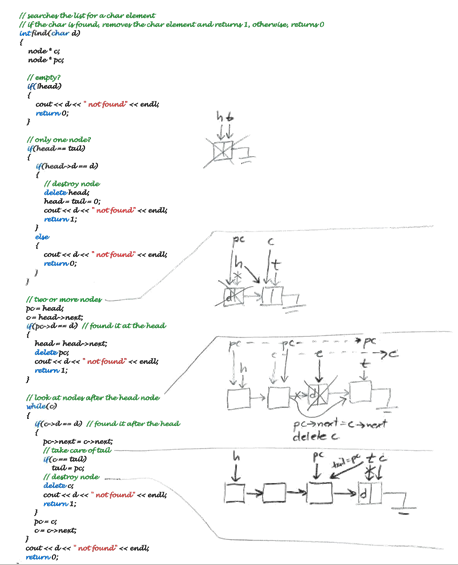 // searches the list for a char element
// if the char is found, removes the char element and returns 1, otherwise, returns 0
int find(char d)
{
node * c;
node * pc;
// empty?
if(!head)
{
cout << d << " not found" << endl;
return 0;
}
h t
// only one node?
if(head == tail)
{
if(head->d == d)
{
// destroy node
delete head;
head = tail = 0;
cout << d << " not found" << endl;
return 1;
}
else
{
cout << d << " not found" << endl;
return 0;
}
}
pc c
h t
d
// two or more nodes
pc = head;
c = head->next;
if(pc->d == d) // found it at the head
{
head = head->next;
delete pc;
cout << d << " not found" << endl;
return 1;
}
pc pc pc
c c c
h t
d
pc->next = c->next
delete c
// look at nodes after the head node
while(c)
{
if(c->d == d) // found it after the head
{
pc->next = c->next;
// take care of tail
if(c == tail)
tail = pc;
// destroy node
delete c;
cout << d << " not found" << endl;
return 1;
}
pc = c;
c = c->next;
}
cout << d << " not found" << endl;
return 0;
h pc tail=pc t c
d